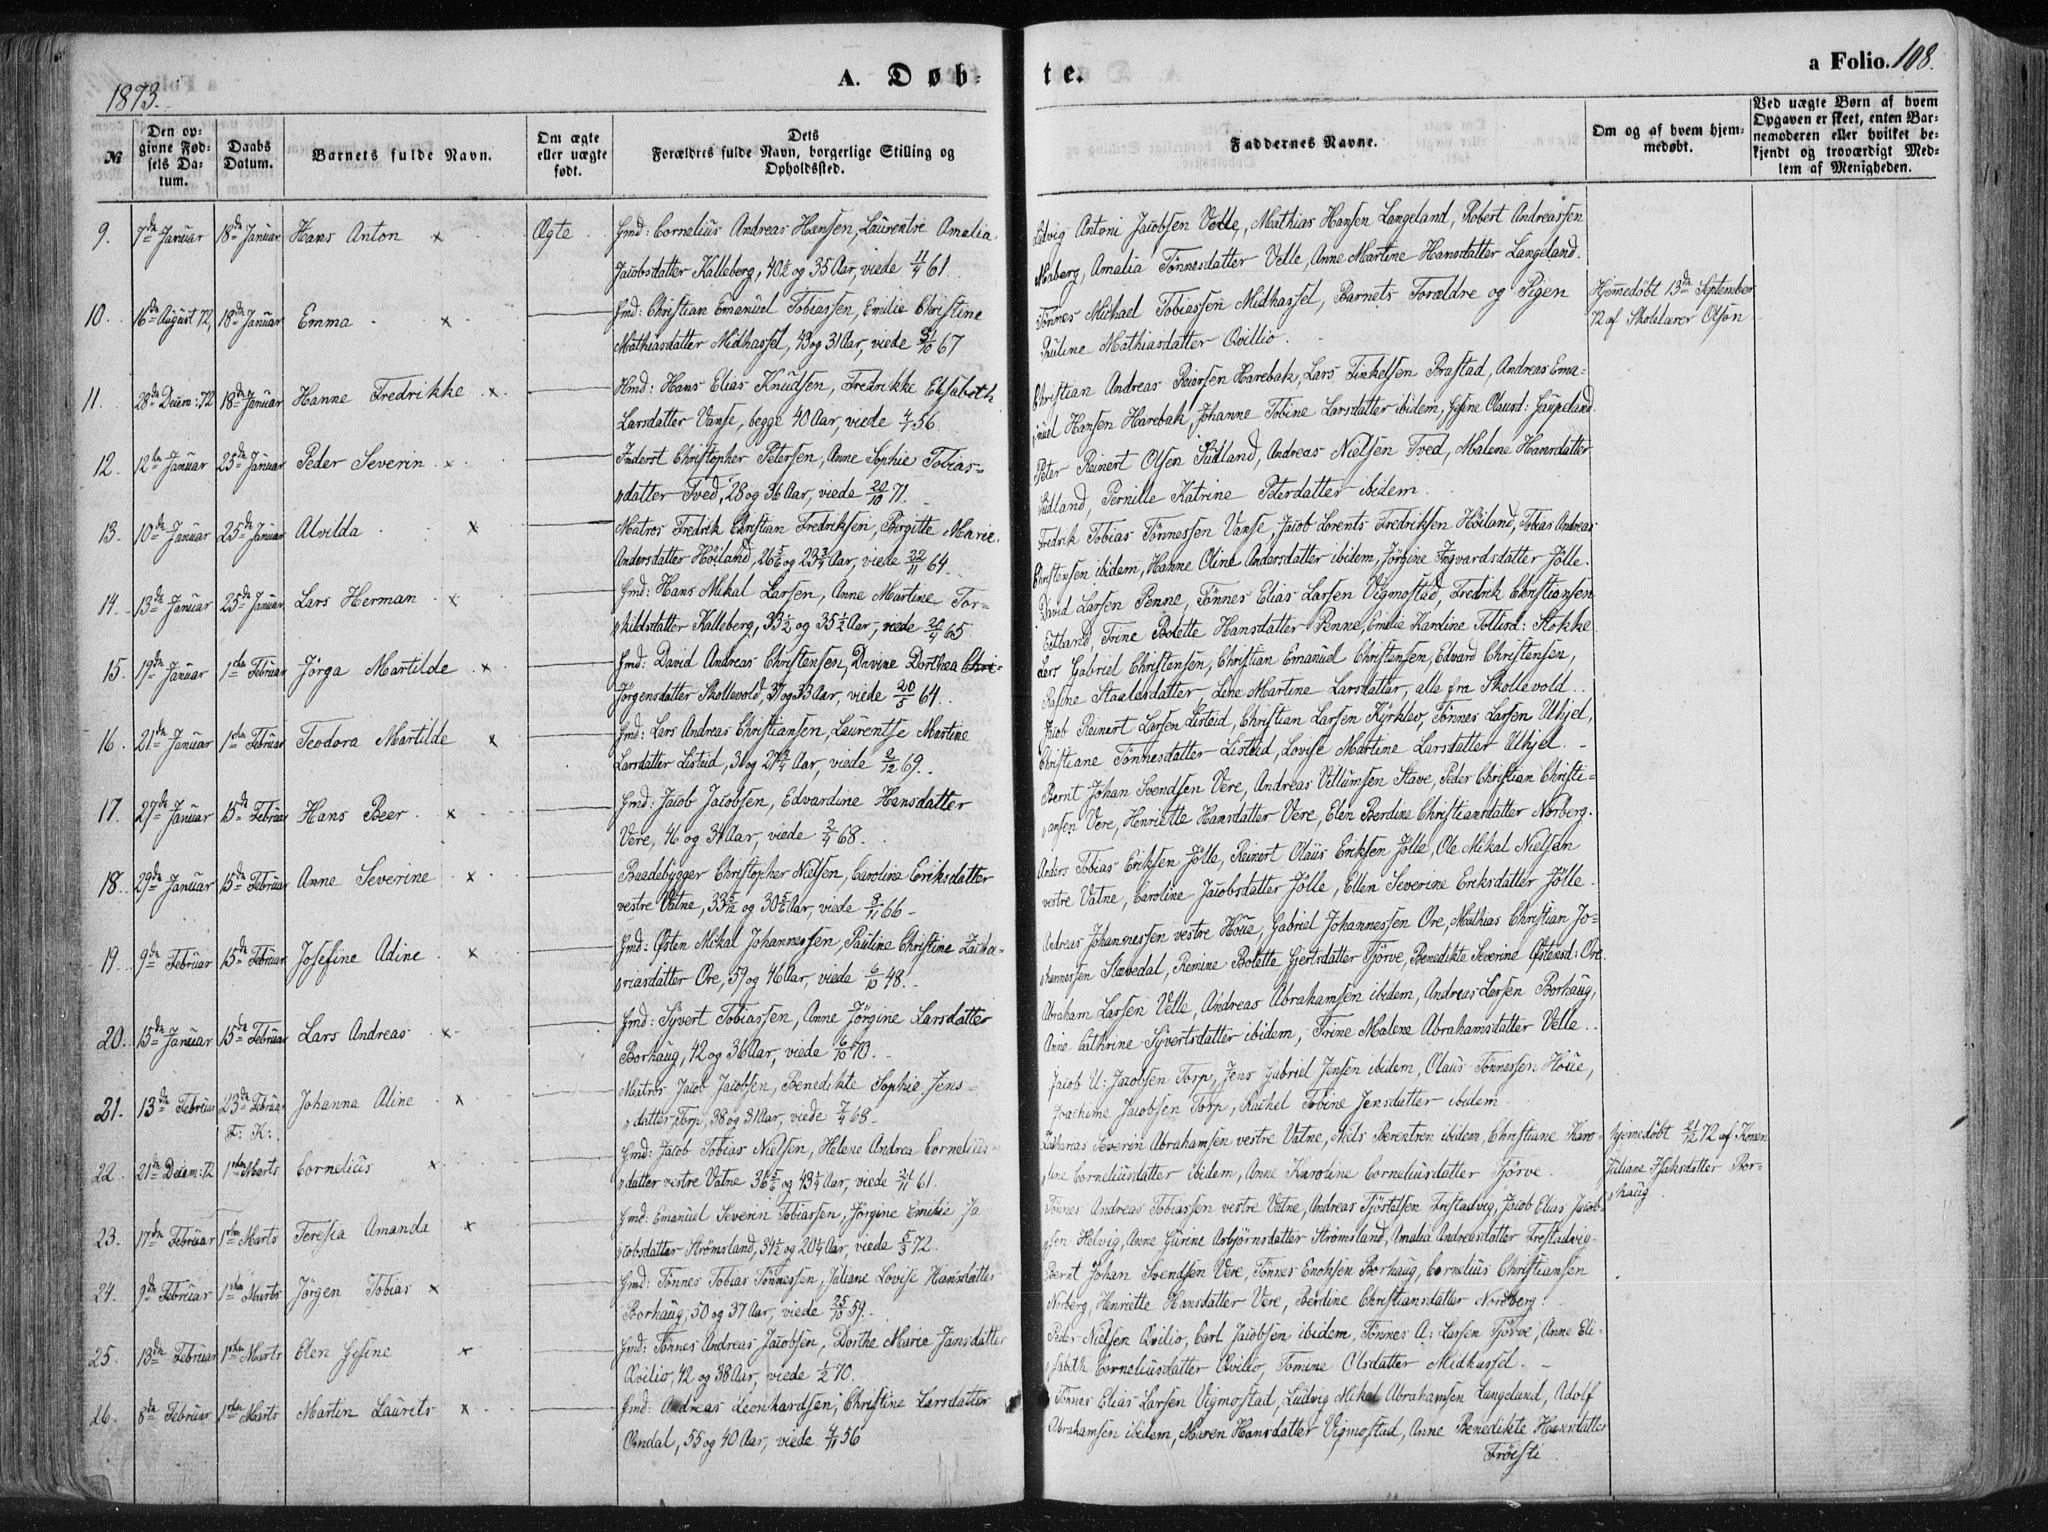 A. Døb-
te.
a Folio. 108.
1873.
№
Den op-
givne Fød-
sels Da-
tum.
Daabs
Datum.
Barnets fulde Navn.
Om ægte
eller uægte
født.
Dets
Forældres fulde Navn, borgerlige Stilling og
Opholdssted.
Faddernes Navne.
Om og af hvem hjem-
medøbt.
Ved uægte Børn af hvem
Opgaven er skeet, enten Bar-
nemoderen eller hvilket be-
kjendt og troværdigt Med-
lem af Menigheden.
9. 7de Januar 18de Januar Hans Anton x Ægte Gmd: Cornelius Andreas Hansen, Laurentse Amalia
Jacobsdatter Kalleberg, 40½ og 35 Aar, viede 11/4 61.
Ludvig Antoni Jacobsen Velle, Mathias Hansen Langeland, Robert Andreassen
Maberg, Amalia Tönnesdatter Velle, Anne Martine Hansdatter Langeland.
10. 16de August 72, 18de Januar Emma x Gmd: Christian Emanuel Tobiassen, Emilie Christine
Mathiasdatter Midhassel, 43 og 31 Aar, viede 31/10 67
Tönnes Michael Tobiassen Midhassel, Barnets Forældre og Pigen
Pauline Mathiasdatter Qvillio.
Hjemmedöbt 13de September
72 af Skolelærer Olson
11. 28de Decem: 72 18de Januar Hanne Fredrikke x Hmd: Hans Elias Knudsen, Fredrikke Elisabeth
Larsdatter Vanse, begge 40 Aar, viede 4/7 56.
Christian Andreas Reiersen Harebak, Lars Tinkelsen Brastad, Andreas Ema-
nuel Hansen Harebak, Johanne Tobine Larsdatter ibidem, Gesine Olausd: Jaupeland.
12. 12te Januar 25de Januar Peder Severin x Inderst Christopher Petersen, Anne Sophie Tobias-
datter Tved, 28 og 36 Aar, viede 20/10 71.
Peter Reinert Olsen Sudland, Andreas Nielsen Tved, Malene Hansdatter
Sudland, Pernille Katrine Petersdatter ibidem.
13. 10de Januar 25de Januar Alvilda x Matros Fredrik Christian Fredriksen, Birgitte Marie
Andersdatter Höiland, 26 5/6 og 23 3/4 Aar, viede 22/11 64.
Fredrik Tobias Tönnessen Vanse, Jacob Lorents Fredriksen Höiland, Tobias Andreas
Christensen ibidem, Hanne Oline Andersdatter ibidem, Jörgine Ingvardsdatter Jölle.
14. 13de Januar 25de Januar Lars Herman x Gmd: Hans Mikal Larsen, Anne Martine Tor-
kildsdatter Kalleberg, 33½ og 35¼ Aar, viede 20/4 65
David Larsen Penne, Tönnes Elias Larsen Vigmostad, Fredrik Christiansen
Eitland, Trine Bolette Hansdatter Penne, Emilie Karoline Tollisd: Stokke.
15. 19de Januar 1ste Februar Jörga Martilde x Gmd: David Andreas Christensen, Davine Dorthea Chri-
Jörgensdatter Skollevold, 37 og 33 Aar, viede 20/5 64.
Lars Gabriel Christensen, Christian Emanuel Christensen, Edvard Christensen,
Rasine Staalesdatter, Lene Martine Larsdatter, alle fra Skollevold.
16. 21de Januar 1ste Februar Teodora Martilde x Gmd: Lars Andreas Christiansen, Laurentse Martine
Larsdatter Listeid, 31 og 27¾ Aar, viede 2/12 69.
Jacob Reinert Larsen Listeid, Christian Larsen Kyrklev, Tönnes Larsen Ulhjel,
Christiane Tönnesdatter Listeid, Lovise Martine Larsdatter Ulhjel.
17. 27de Januar 15de Februar Hans Beer x Gmd: Jacob Jacobsen, Edvardine Hansdatter
Vere, 46 og 31 Aar, viede 2/4 68.
Bernt Johan Svendsen Vere, Andreas Villumsen Stave, Peder Christian Christi-
ansen Vere, Henriette Hansdatter Vere, Elen Berdine Christiansdatter Norberg.
18. 29de Januar 15de Februar Anne Severine x Baadebygger Christopher Nielsen, Caroline Eriksdatter
vestre Vatne, 33 5/12 og 30 5/6 Aar, viede 8/11 66
Anders Tobias Eriksen Jölle, Reinert Olaus Eriksen Jölle, Ole Mikal Nielsen
vestre Vatne, Caroline Jacobsdatter Jölle, Ellen Severine Eriksdatter Jölle.
19. 9de Februar 15de Februar Josefine Adine x Gmd: Østen Mikal Johannessen, Pauline Christine Zacha-
riasdatter Ore, 59 og 46 Aar, viede 6/10 48.
Andreas Johannessen vestre Houe, Gabriel Johannessen Ore, Mathias Christian Jo-
hannessen Stavedal, Remine Bolette Gjertsdatter Tjörve, Benedikte Severine Østensd: Ore.
20. 15de Januar 15de Februar Lars Andreas x Gmd: Syvert Tobiassen, Anne Jörgine Larsdatter
Borhaug, 42 og 36 Aar, viede 6/10 70.
Abraham Larsen Velle, Andreas Abrahamsen ibidem, Andreas Larsen Borhaug,
Anne Cathrine Syvertsdatter ibidem, Trine Malene Abrahamsdatter Velle.
21. 13de Februar 23de Februar Johanna Aline x Matros Jacob Jacobsen, Benedikte Sophie Jens-
F: K:.
datter Torp, 38 og 31 Aar, viede 7/4 68.
Jacob U: Jacobsen Torp, Jens Gabriel Jensen ibidem, Olaus Tönnessen Houe,
Joachime Jacobsen Torp, Rachel Tobine Jensdatter ibidem
22. 21de Decem: 72 1ste Marts Cornelius x Gmd: Jacob Tobias Nielsen, Helene Andrea Cornelius-
datter vestre Vatne 36 5/6 og 43¼ Aar, viede 21/11 61.
Zacharias Severin Abrahamsen vestre Vatne, Niels Berentsen ibidem, Christiane Karo-
line Corneliusdatter ibidem, Anne Karoline Corneliusdatter Tjörve.
Hjemedöbt 21/12 72 af Konen
Juliane Isaksdatter Bor-
haug
23. 17de Februar 1ste Marts Teresia Amanda x Gmd: Emanuel Severin Tobiassen, Jörgine Emilie Ja
cobsdatter Strömsland, 34½ og 20¼ Aar, viede 5/3 72.
Tönnes Andreas Tobiassen vestre Vatne, Andreas Tjöstelsen Frestadvig, Jacob Elias Jacob-
sen Helvig, Anne Gurine Asbjörnsdatter Strömsland, Amalia Andreasdatter Frestadvig.
24. 9de Februar 1ste Marts Jörgen Tobias x Gmd: Tönnes Tobias Tönnessen, Juliane Lovise Hansdatter
Borhaug, 50 og 37 Aar, viede 25/11 59.
Bernt Johan Svendsen Vere, Tönnes Enoksen Borhaug, Cornelius Christiansen
Norberg, Henriette Hansdatter Vere, Berdine Christiansdatter Nordberg.
25. 13de Februar 1ste Marts Elen Gesine x Gmd: Tönnes Andreas Jacobsen, Dorthe Marie Jansdatter
Qvilio, 42 og 38 Aar, viede 1/2 70.
Peder Nielsen Qvilio, Carl Jacobsen ibidem, Tönnes A: Larsen Tjörve, Anne Eli-
sabith Corneliusdatter Qvilio, Tomine Olsdatter Midhassel.
26. 8de Februar 1ste Marts Martin Laurits x Gmd: Andreas Leonhardsen, Christine Larsdatter
Omdal, 55 og 40 Aar, viede 4/11 56
Tönnes Elias Larsen Vigmostad, Ludvig Mikal Abrahamsen Langeland, Adolf
Abrahamsen ibidem, Maren Hansdatter Vigmostad, Anne Benedikte Hansdatter
Tröesti